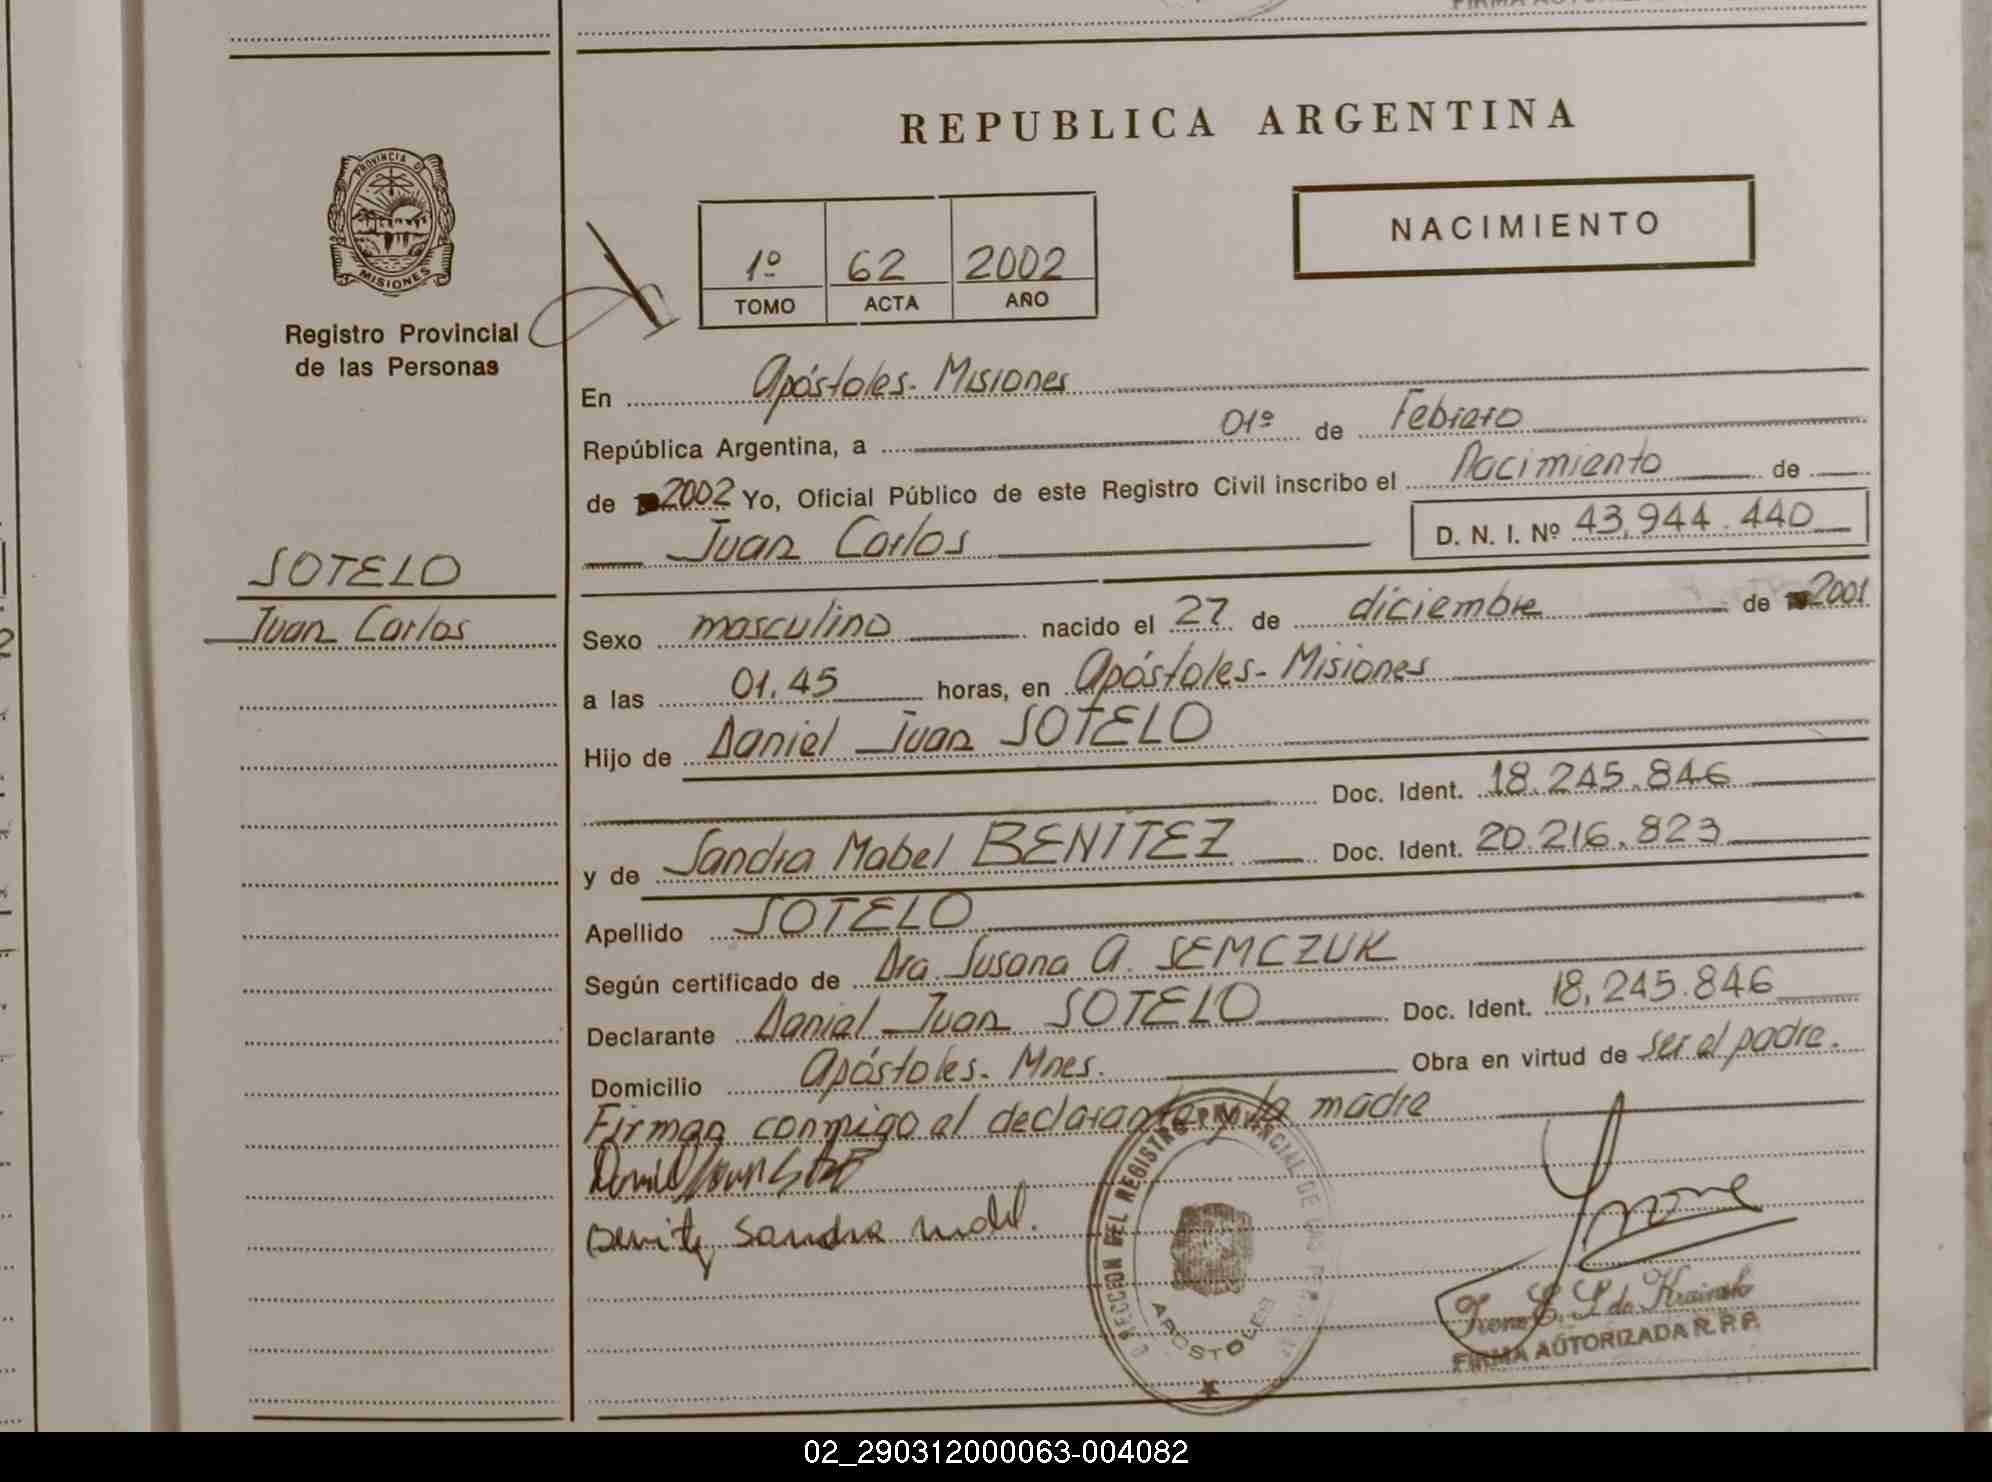 REPUBLICA ARGENTINA
PROVINCIA DE MISIONES
Registro Provincial
de las Personas
NACIMIENTO
1º 62 2002
TOMO ACTA AÑO
En Apóstoles - Misiones
República Argentina, a 01º de Febrero
de 2002 Yo, Oficial Público de este Registro Civil inscribo el Nacimiento de
Juan Carlos D. N. I. Nº 43.944.440
SOTELO
Juan Carlos
Sexo masculino nacido el 27 de diciembre de 2001
a las 01.45 horas, en Apóstoles - Misiones
Hijo de Daniel Juan SOTELO
Doc. Ident. 18.245.846
y de Sandra Mabel BENÍTEZ Doc. Ident. 20.216.823
Apellido SOTELO
Según certificado de Dra. Susana A. SEMCZUK
Declarante Daniel Juan SOTELO Doc. Ident. 18.245.846
Domicilio Apóstoles - Mnes. Obra en virtud de ser el padre.
Firman conmigo el declarante y la madre
Benitez Sandra Mabel.
DIRECCION DEL REGISTRO PROVINCIAL DE LAS
APOSTOLES
Irene
FIRMA AUTORIZADA R.P.P.
02_290312000063-004082